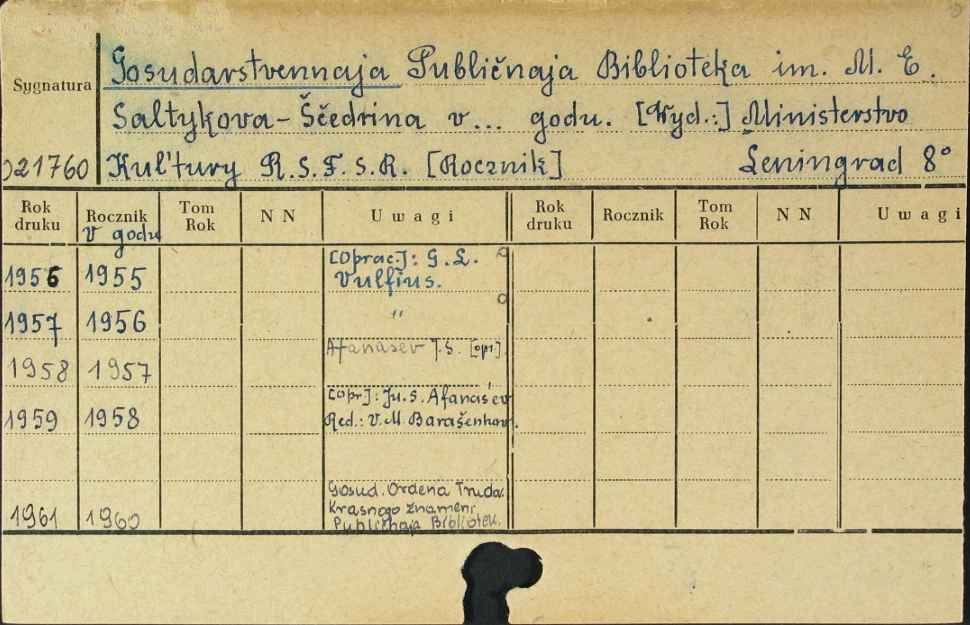 Sygnatura
Gosudarstvennaja Publičnaja Biblioteka im. M. E.
Saltykova-Ščedrina v... godu. [Wyd.:] Ministerstvo
021760 Kul'tury R.S.F.S.R. [Rocznik] Leningrad 8°
Rok druku Rocznik Tom Rok NN Uwagi Rok druku Rocznik Tom Rok NN Uwagi
v godu
1956 1955 [Oprac.]: G. L.
Vulfius.
1957 1956 "
1958 1957 Afanasev J.S. [opr].
1959 1958 [opr]: Ju. S. Afanas'ev
Red.: V.M. Barašenkov.
Gosud. Ordena Trudov.
Krasnogo Znameni
1961 1960 Publičnaja Bibliotek.